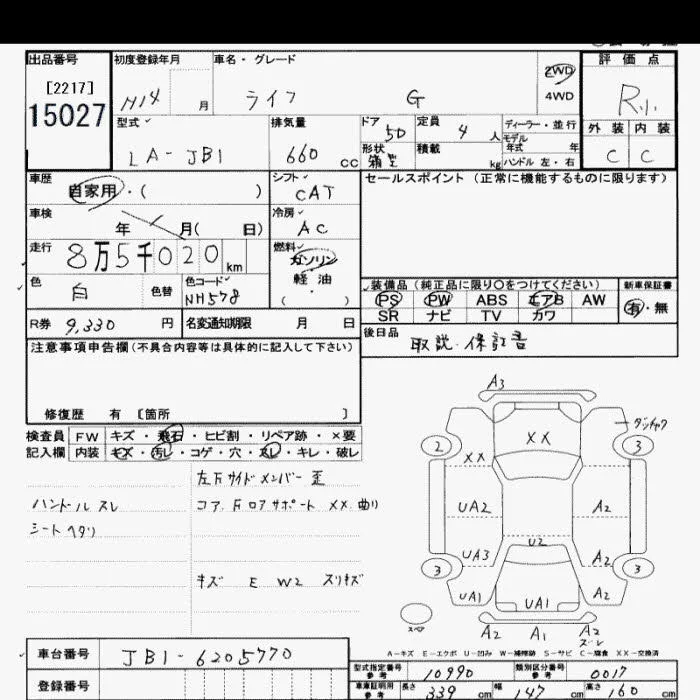 出品番号 初度登録年月 車名・グレード 2WD 評価点
[2217] 4WD
15027 H14 月 ライフ G R小
型式 排気量 ドア 5D 定員 4 人 ディーラー・並行 外装 内装
モデル
LA-JB1 660 cc 形状 箱型 積載 kg 年式 年 C C
ハンドル 左・右
車歴 自家用・( ) シフト CAT セールスポイント(正常に機能するものに限ります)
車検 年 月( 日) 冷房 AC
走行 8万5千020 km 燃料 ガソリン
軽油
( )
色 白 色替 色コード NH578 装備品(純正品に限り〇をつけてください) 新車保証書
PS PW ABS エアB AW 有・無
SR ナビ TV カワ
R券 9,330 円 名変通知期限 月 日
後日品 取説・保証書
注意事項申告欄(不具合内容等は具体的に記入して下さい)
修復歴 有 [箇所 ]
検査員 FW キズ・飛石・ヒビ割・リペア跡・×要
記入欄 内装 キズ・汚レ・コゲ・穴・スレ・キレ・破レ
左万サイドメンバー 歪
ハンドル スレ
シート ヘタリ
キズ E W2 スリキズ
A3
2 XX XX 3
UA2 A2
U2
UA3 A2
3 3
UA1 UA1 A2
スペア A2 A1 A2
スレ
A-キズ E-エクボ U-凹み W-補修跡 S-サビ C-腐食 XX-交換済
車台番号 JB1-6205770
登録番号
型式指定番号 参考 10990 類別区分番号 参考 0017
車庫証明用 参考 長さ 339 cm 幅 147 cm 高さ 160 cm